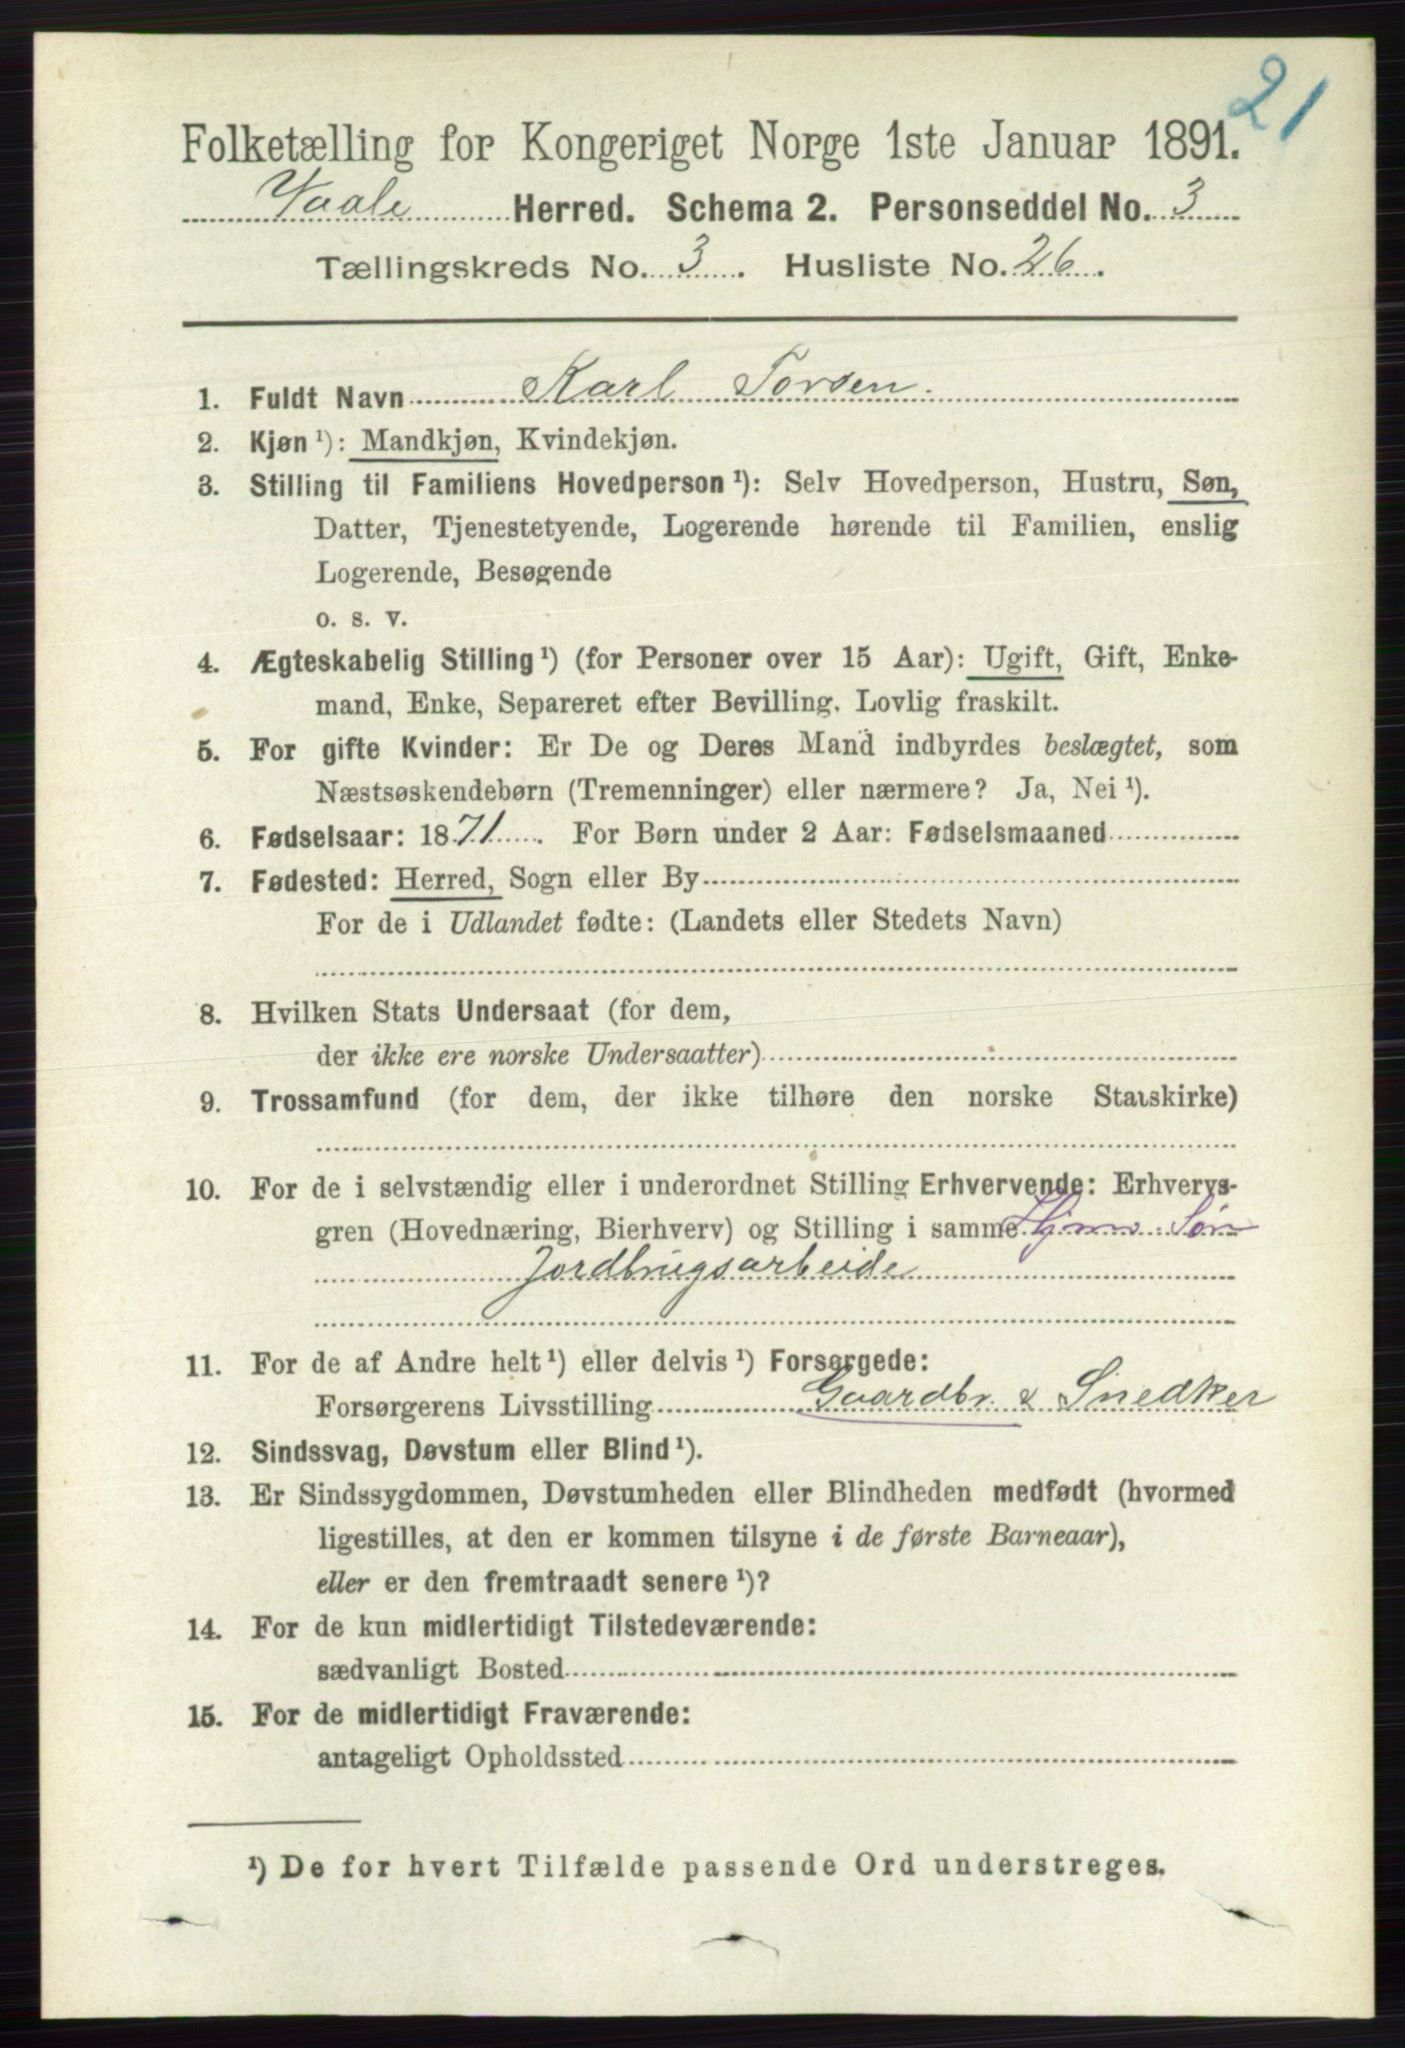 21
Folketælling for Kongeriget Norge 1ste Januar 1891.
Vaale Herred. Schema 2. Personseddel No. 3
Tællingskreds No. 3. Husliste No. 26.
1. Fuldt Navn Karl Torsen.
2. Kjøn ¹): Mandkjøn, Kvindekjøn.
3. Stilling til Familiens Hovedperson ¹): Selv Hovedperson, Hustru, Søn,
Datter, Tjenestetyende, Logerende hørende til Familien, enslig
Logerende, Besøgende
o. s. v.
4. Ægteskabelig Stilling ¹) (for Personer over 15 Aar): Ugift, Gift, Enke-
mand, Enke, Separeret efter Bevilling. Lovlig fraskilt.
5. For gifte Kvinder: Er De og Deres Mand indbyrdes beslægtet, som
Næstsøskendebørn (Tremenninger) eller nærmere? Ja, Nei ¹).
6. Fødselsaar: 1871. For Børn under 2 Aar: Fødselsmaaned
7. Fødested: Herred, Sogn eller By
For de i Udlandet fødte: (Landets eller Stedets Navn)
8. Hvilken Stats Undersaat (for dem,
der ikke ere norske Undersaatter)
9. Trossamfund (for dem, der ikke tilhøre den norske Statskirke)
10. For de i selvstændig eller i underordnet Stilling Erhvervende: Erhvervs-
gren (Hovednæring, Bierhverv) og Stilling i samme Hjmv. Søn
Jordbrugsarbeide
11. For de af Andre helt ¹) eller delvis ¹) Forsørgede:
Forsørgerens Livsstilling Gaardbr. & Snedker
12. Sindssvag, Døvstum eller Blind ¹).
13. Er Sindssygdommen, Døvstumheden eller Blindheden medfødt (hvormed
ligestilles, at den er kommen tilsyne i de første Barneaar),
eller er den fremtraadt senere ¹)?
14. For de kun midlertidigt Tilstedeværende:
sædvanligt Bosted
15. For de midlertidigt Fraværende:
antageligt Opholdssted
¹) De for hvert Tilfælde passende Ord understreges.